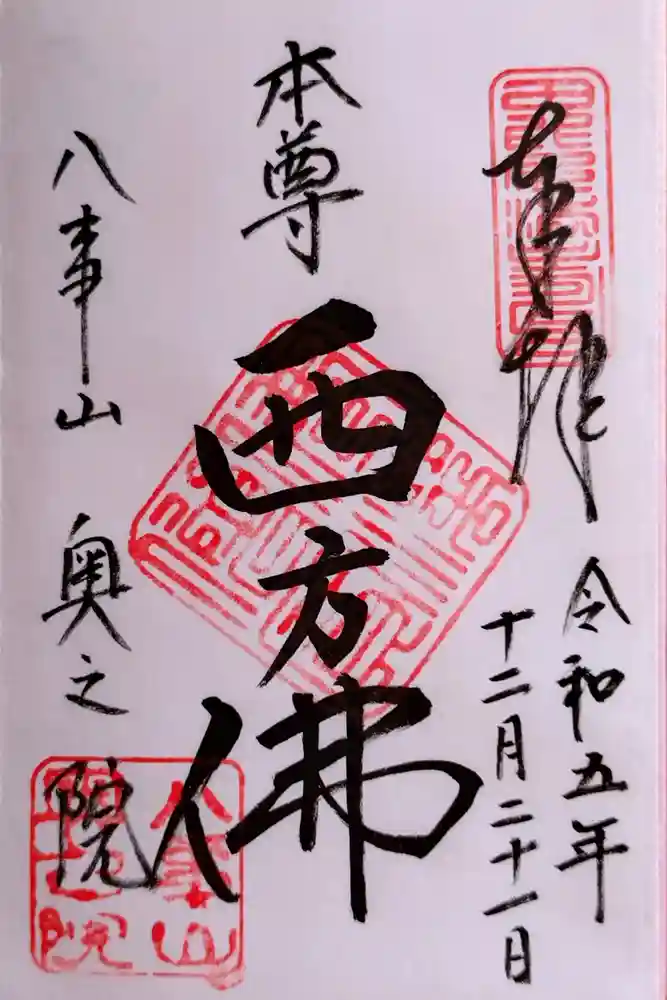 奉拝
令和五年
十二月二十一日
本尊
西方佛
八事山
奥之院
八事山